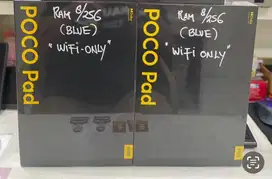 RAM 8/256
(BLUE)
"WiFi-ONLY"
POCO Pad
RAM 8/256
(BLUE)
"WiFi ONLY"
POCO Pad